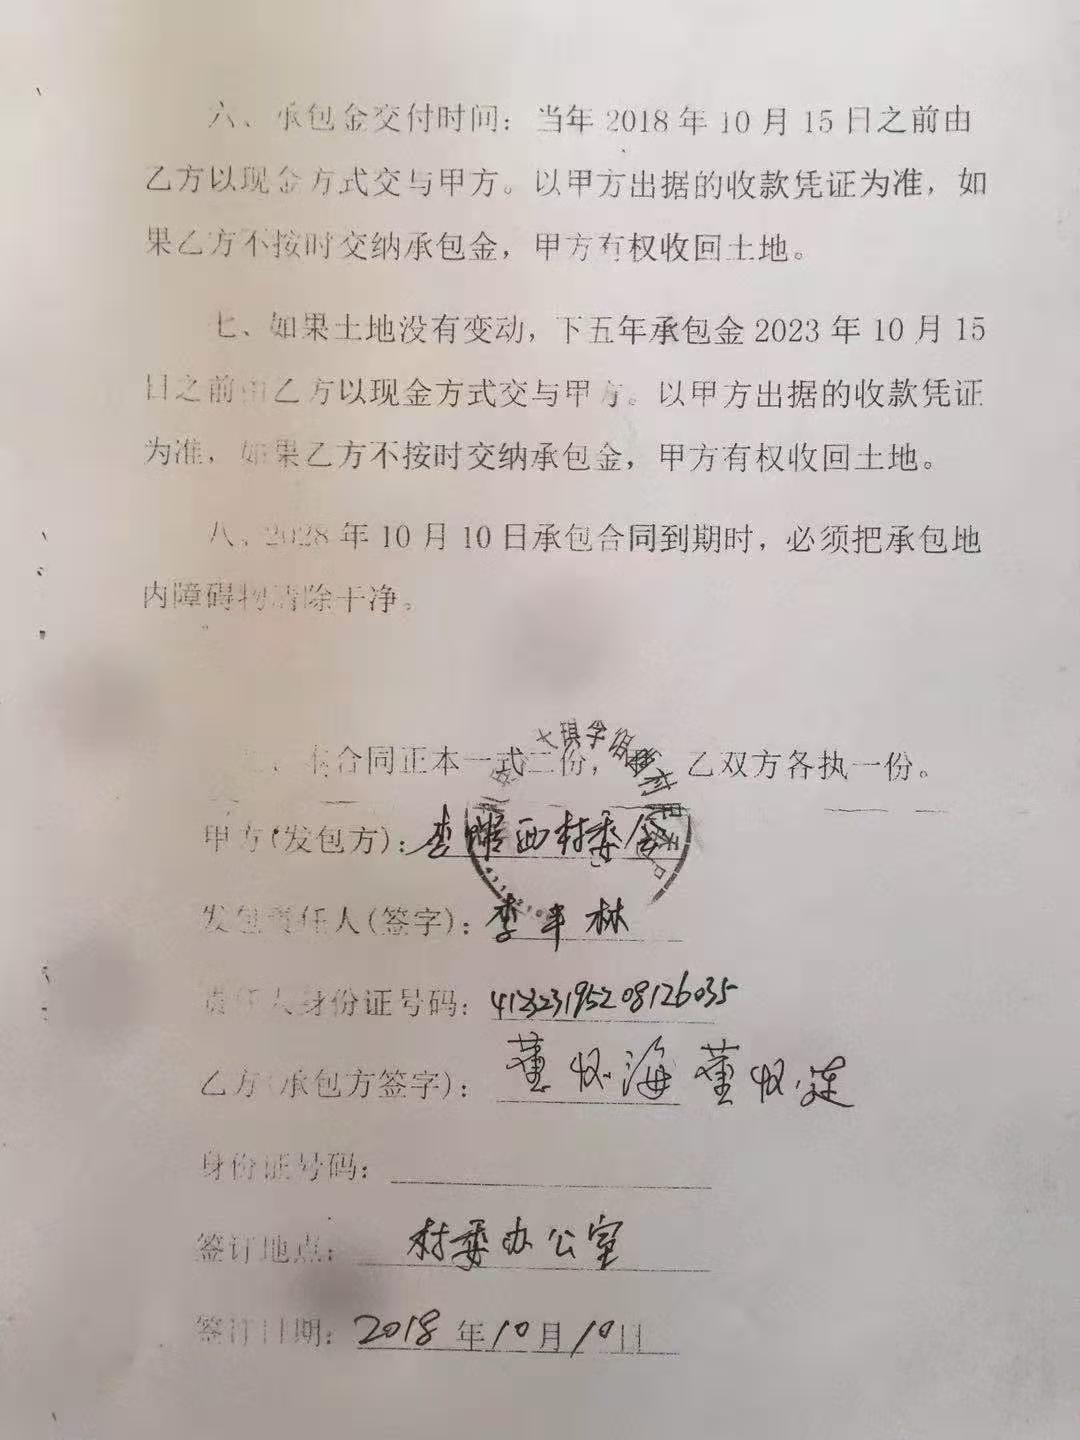 六、承包金交付时间：当年 2018 年 10 月 15 日之前由
乙方以现金方式交与甲方。以甲方出据的收款凭证为准，如
果乙方不按时交纳承包金，甲方有权收回土地。
七、如果土地没有变动，下五年承包金 2023 年 10 月 15
日之前由乙方以现金方式交与甲方。以甲方出据的收款凭证
为准，如果乙方不按时交纳承包金，甲方有权收回土地。
八、2028 年 10 月 10 日承包合同到期时，必须把承包地
内障碍物清除干净。
本合同正本一式二份，乙双方各执一份。
甲方(发包方)：李 西村委会
发包责任人(签字)：李 林
责任人身份证号码：412323195208126035
乙方(承包方签字)：董怀海 董怀
身份证号码：
签订地点：村委办公室
签订日期：2018年10月10日